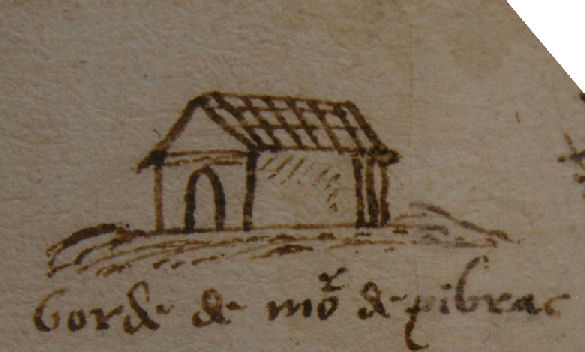 borde de mor de pibrac